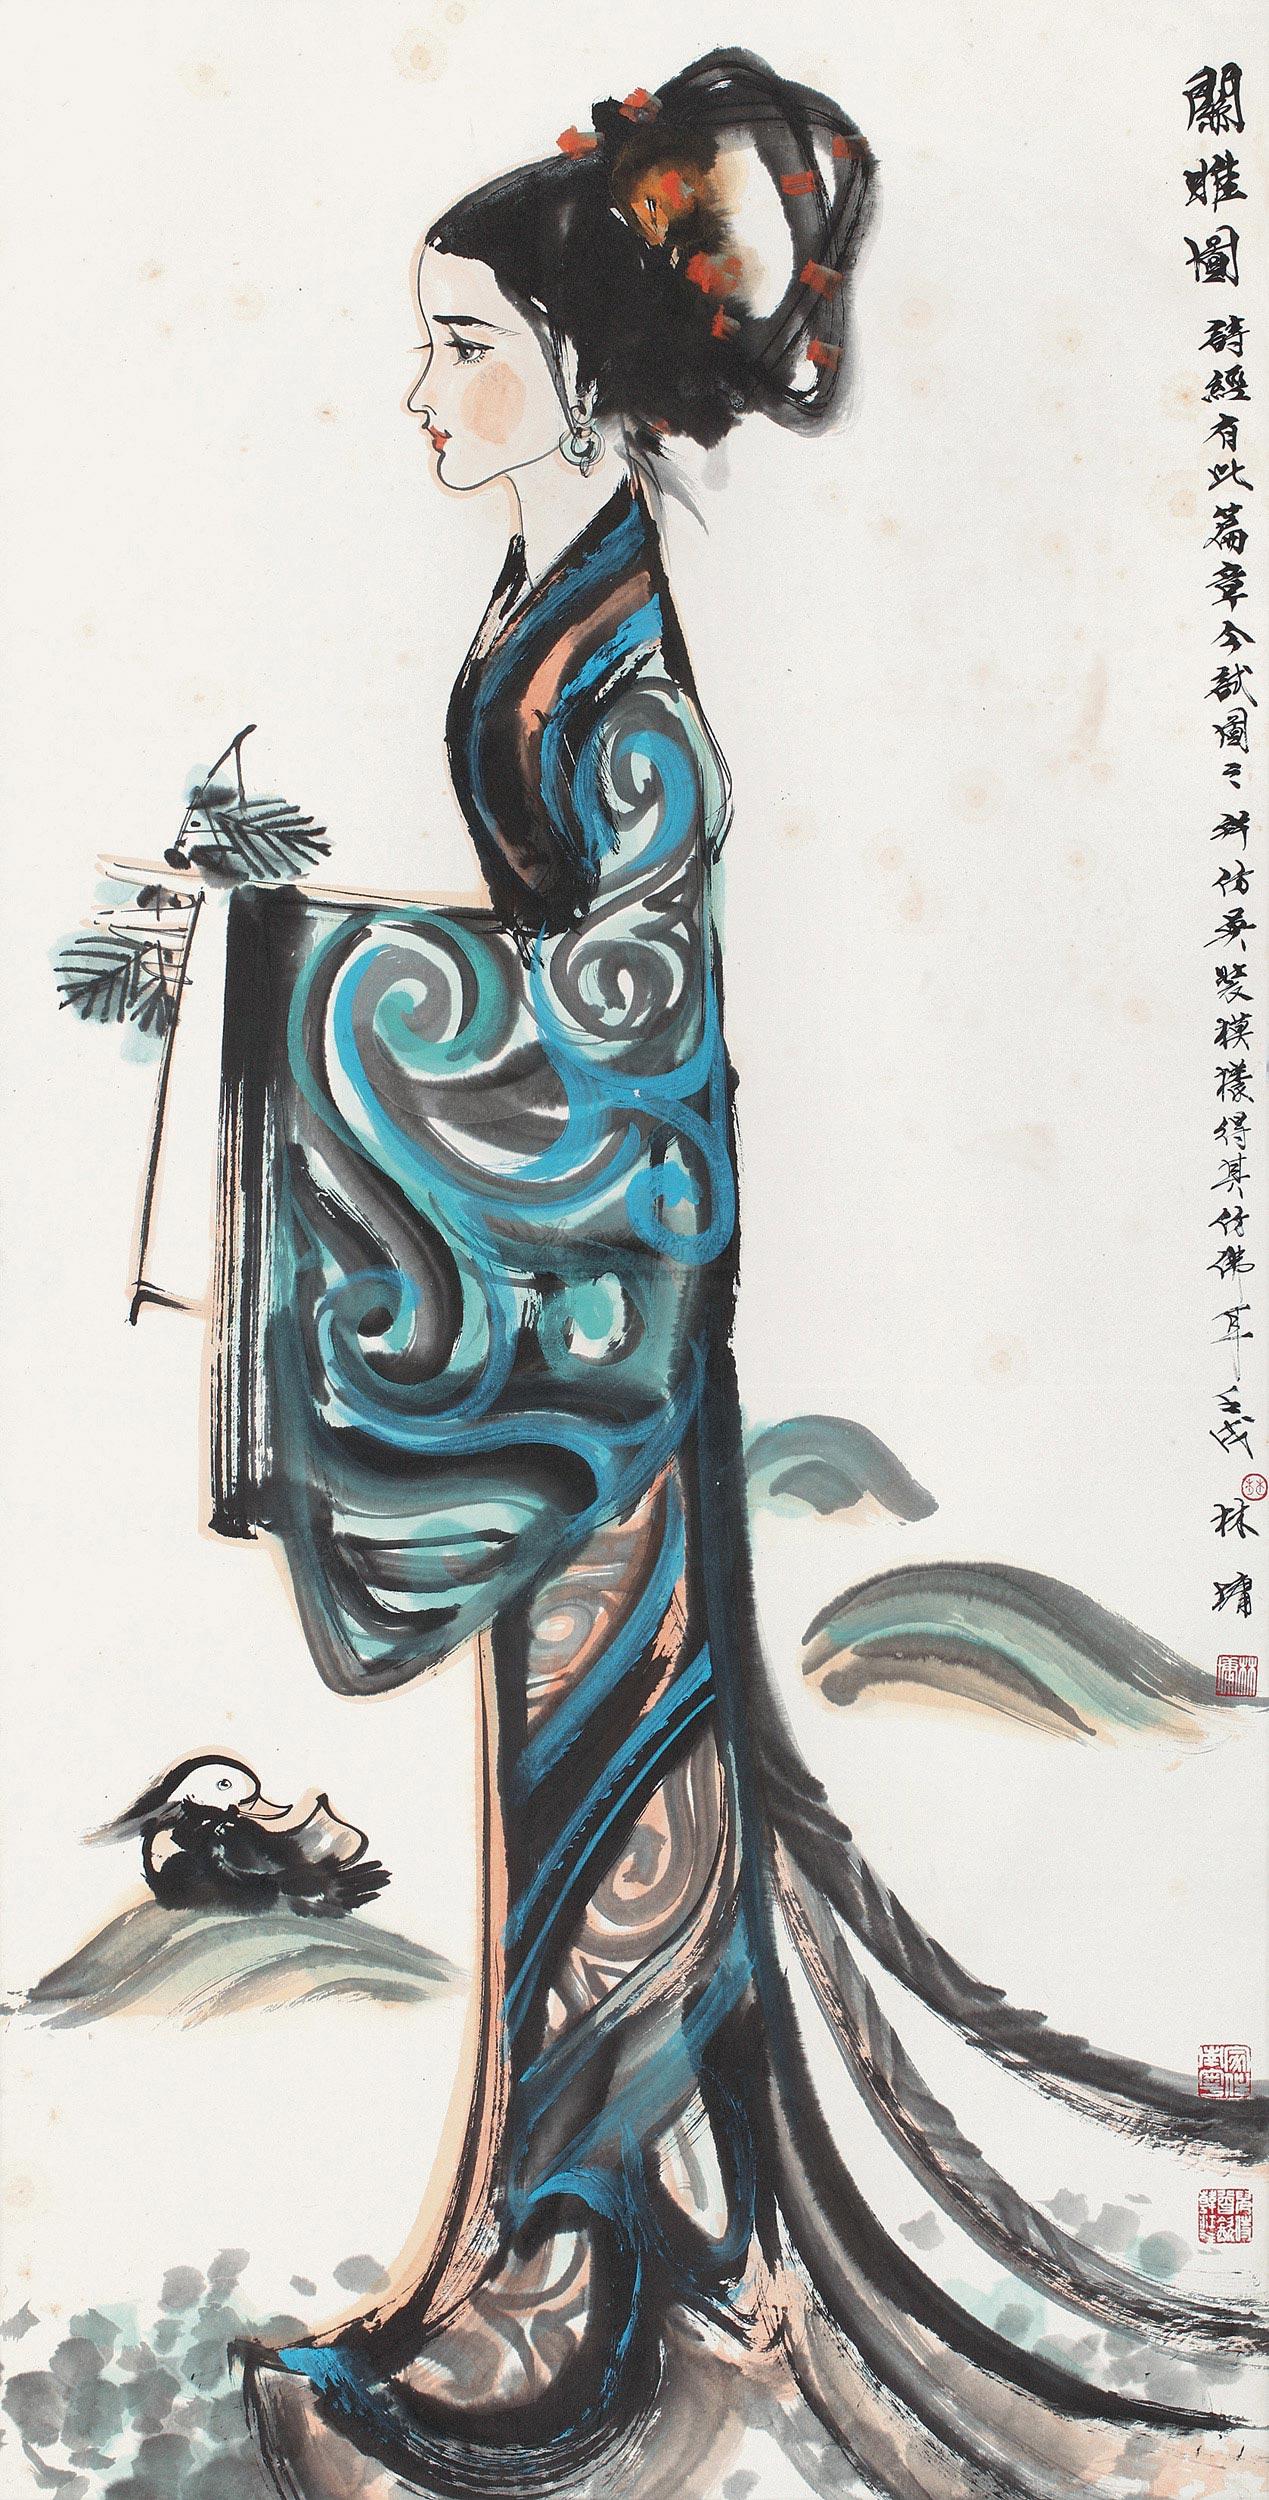 關雎圖 詩經有此篇章今試圖之 仿 裝模樣得其仿佛耳 壬戌 林墉
林
林墉